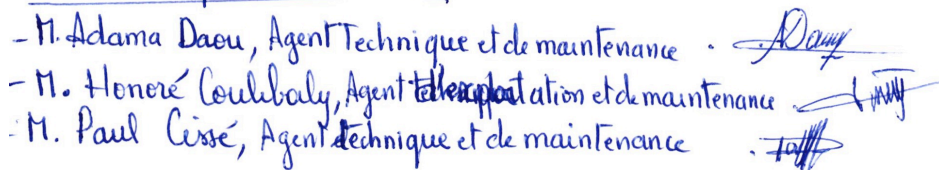 - M. Adama Daou, Agent Technique et de maintenance .
- M. Honoré Coulibaly, Agent d'exploitation et de maintenance .
- M. Paul Cissé, Agent technique et de maintenance .